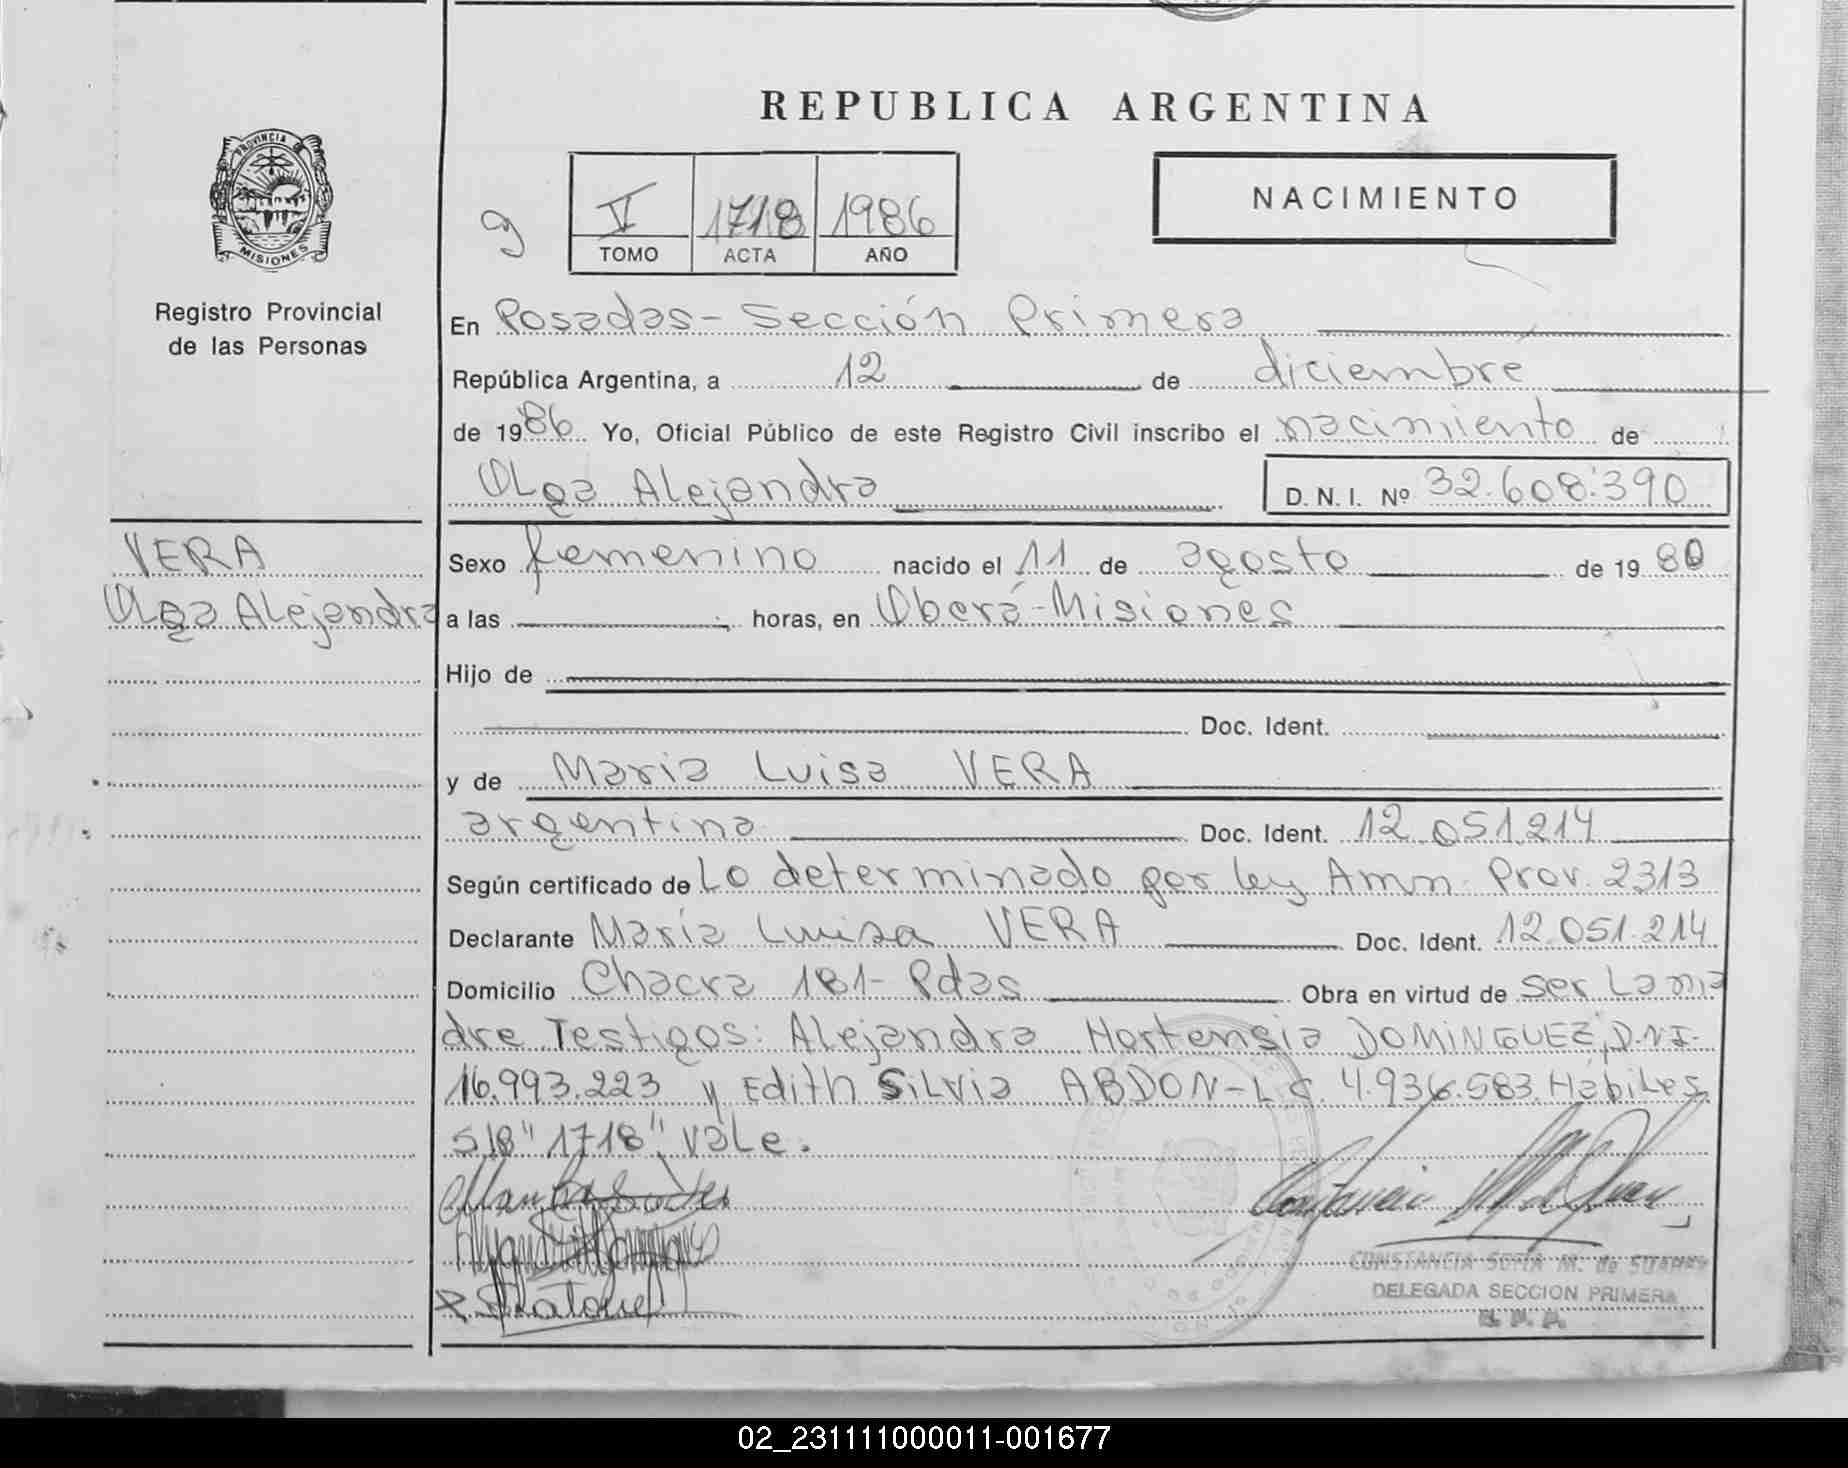 REPUBLICA ARGENTINA
PROVINCIA DE
MISIONES
Registro Provincial
de las Personas
V 1718 1986
TOMO ACTA AÑO
NACIMIENTO
En Posadas - Sección Primera
República Argentina, a 12 de diciembre
de 1986 Yo, Oficial Público de este Registro Civil inscribo el nacimiento de
Olga Alejandra D. N. I. Nº 32.608.390
VERA
Olga Alejandra
Sexo femenino nacido el 11 de agosto de 1980
a las horas, en Oberá - Misiones
Hijo de
Doc. Ident.
y de Maria Luisa VERA
argentina Doc. Ident. 12.051.214
Según certificado de Lo determinado por ley Amn. Prov. 2313
Declarante María Luisa VERA Doc. Ident. 12.051.214
Domicilio Chacra 181 - Pdas Obra en virtud de ser La ma
dre Testigos: Alejandra Hortensia DOMINGUEZ, D.N.I.
16.993.223 y Edith Silvia ABDON - L C. 4.936.583. Hábiles
S/R "1718" Vale.
CONSTANCIA SOFIA M. de
DELEGADA SECCION PRIMERA
02_231111000011-001677